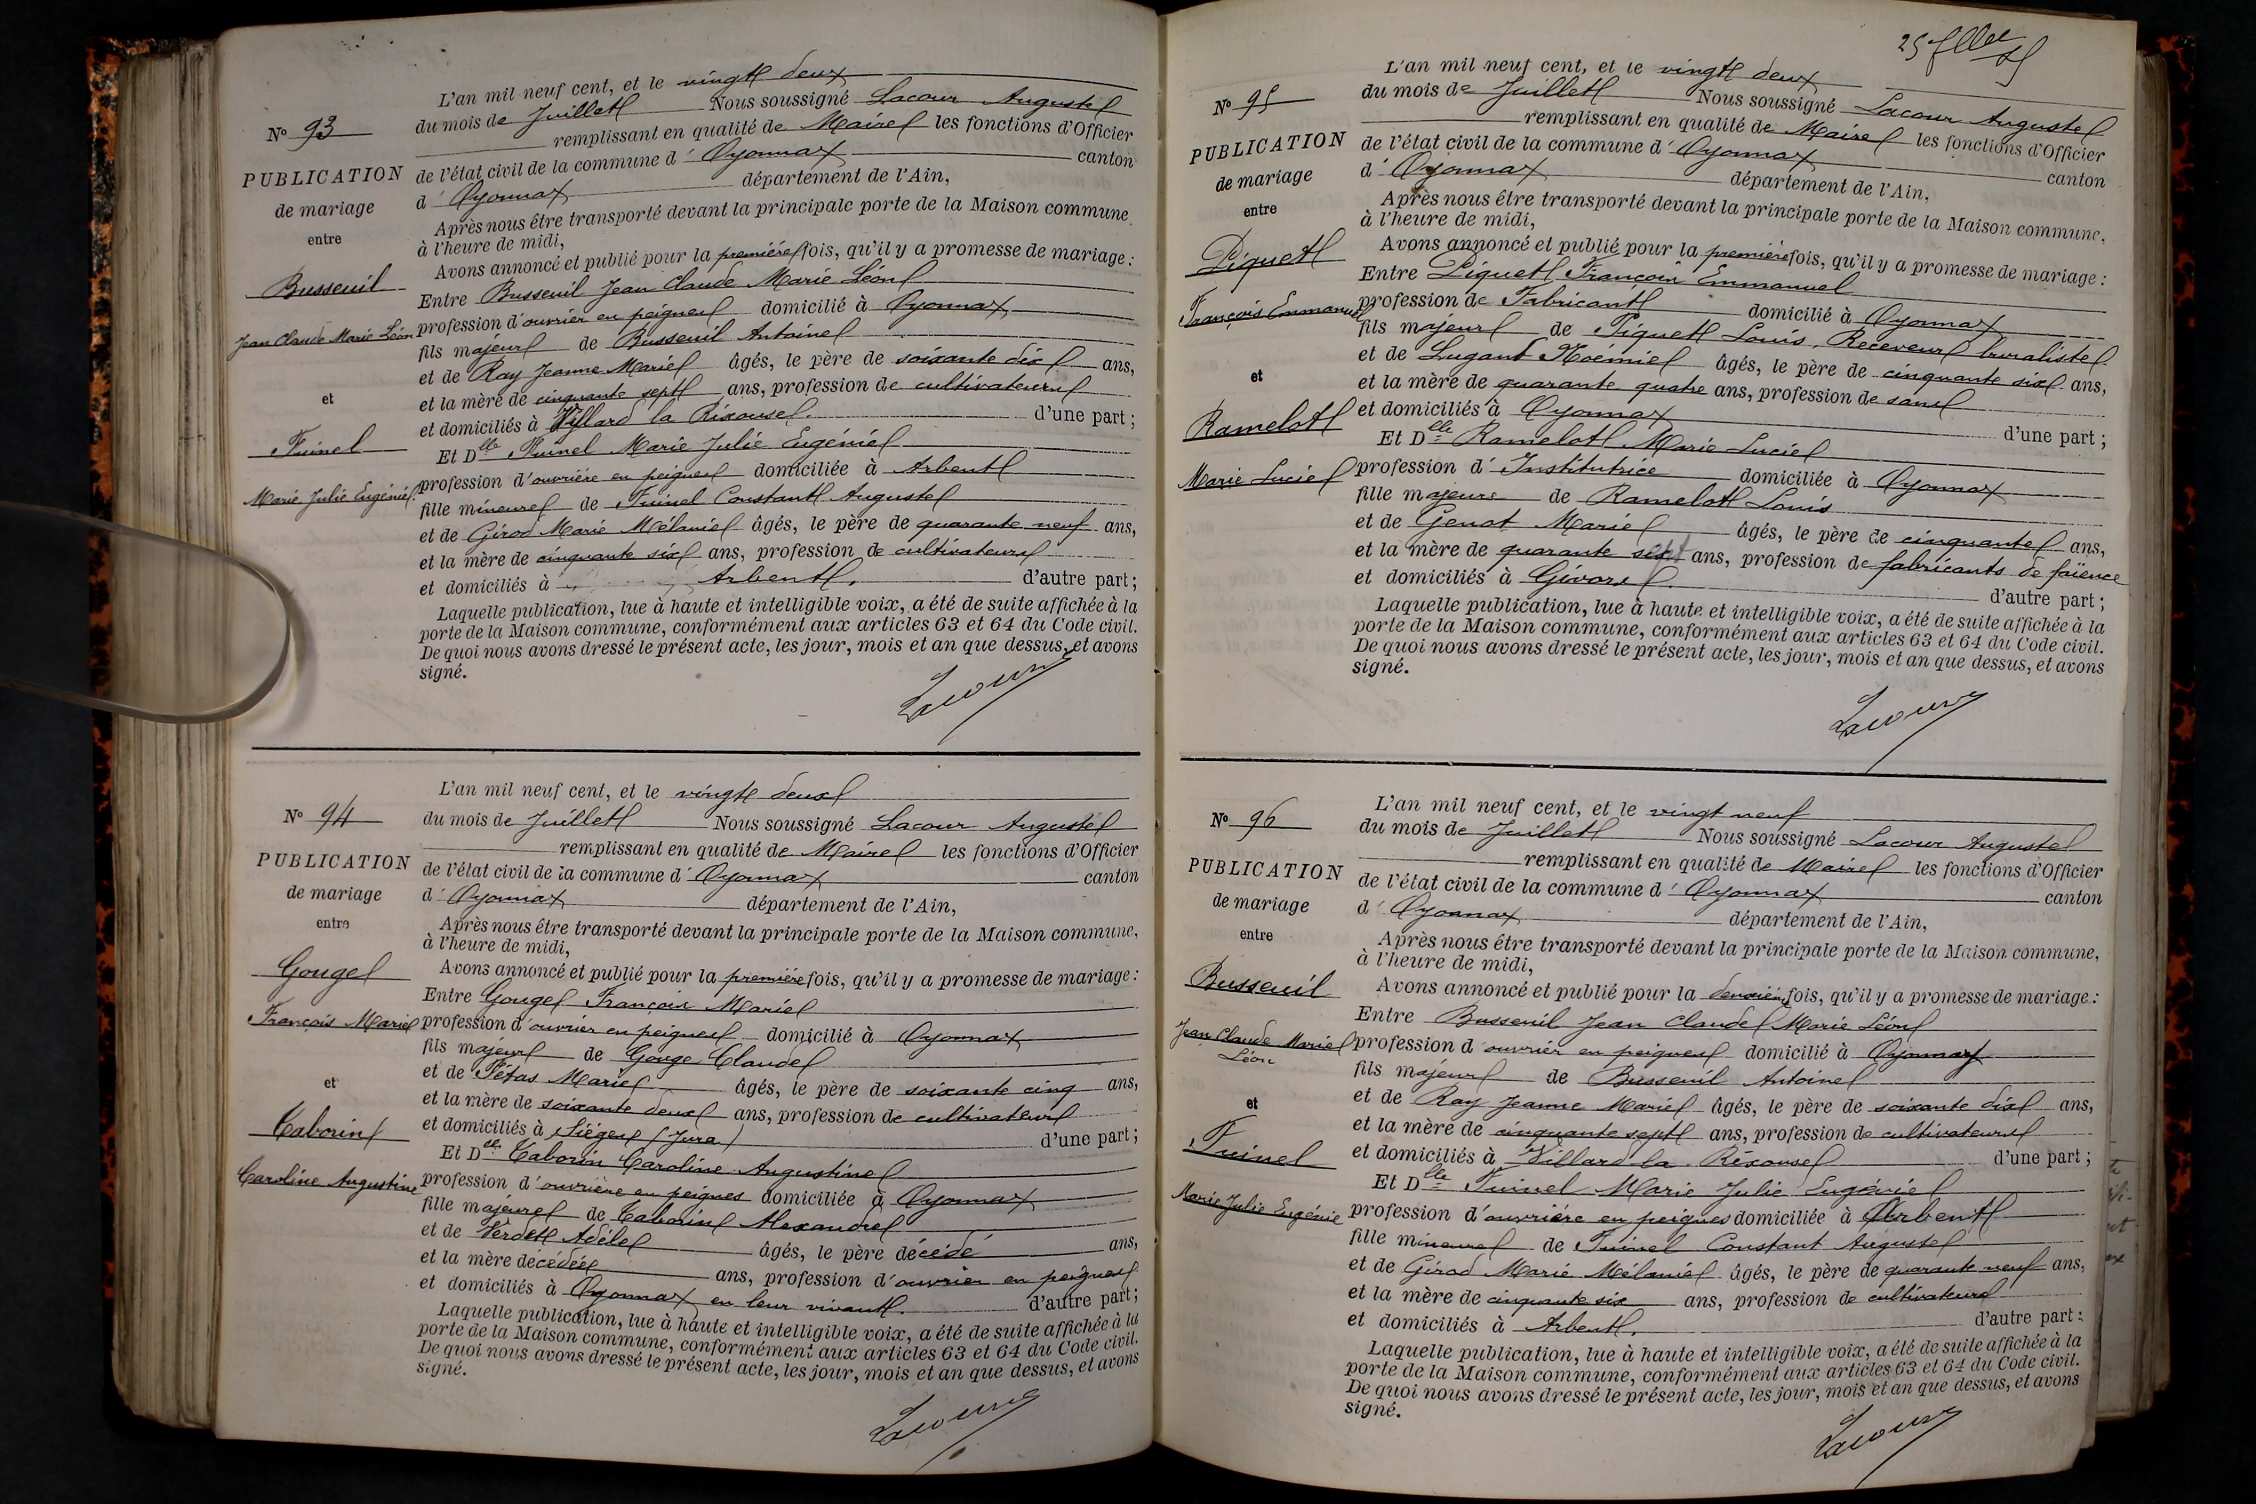 L'an mil neuf cent, et le vingt deux
du mois de Juillet Nous soussigné Lacour Auguste
remplissant en qualité de Maire les fonctions d'Officier
de l'état civil de la commune d' Oyonnax canton
d' Oyonnax département de l'Ain,
Après nous être transporté devant la principale porte de la Maison commune,
à l'heure de midi,
Avons annoncé et publié pour la première fois, qu'il y a promesse de mariage:
Entre Busseuil Jean Claude Marie Léon
profession d'ouvrier en peignes domicilié à Oyonnax
fils majeur de Busseuil Antoine
et de Ray Jeanne Marie âgés, le père de soixante dix ans,
et la mère de cinquante sept ans, profession de cultivateurs
et domiciliés à Villard la Rixouse. d'une part;
Et Dlle Tuinel Marie Julie Eugénie
profession d'ouvrière en peignes domiciliée à Arbent
fille mineure de Tuinel Constant Auguste
et de Girod Marie Mélanie âgés, le père de quarante neuf ans,
et la mère de cinquante six ans, profession de cultivateurs
et domiciliés à Arbent. d'autre part;
Laquelle publication, lue à haute et intelligible voix, a été de suite affichée à la
porte de la Maison commune, conformément aux articles 63 et 64 du Code civil.
De quoi nous avons dressé le présent acte, les jour, mois et an que dessus, et avons
signé.
Lacour
No 93
PUBLICATION
de mariage
entre
Busseuil
Jean Claude Marie Léon
et
Tuinel
Marie Julie Eugénie
L'an mil neuf cent, et le vingt deux
du mois de Juillet Nous soussigné Lacour Auguste
remplissant en qualité de Maire les fonctions d'Officier
de l'état civil de la commune d' Oyonnax canton
d' Oyonnax département de l'Ain,
Après nous être transporté devant la principale porte de la Maison commune,
à l'heure de midi,
Avons annoncé et publié pour la première fois, qu'il y a promesse de mariage:
Entre Gouge François Marie
profession d'ouvrier en peignes domicilié à Oyonnax
fils majeur de Gouge Claude
et de Pétas Marie âgés, le père de soixante cinq ans,
et la mère de soixante deux ans, profession de cultivateurs
et domiciliés à Siéges (Jura) d'une part;
Et Dlle Taborin Caroline Augustine
profession d'ouvrière en peignes domiciliée à Oyonnax
fille majeure de Taborin Alexandre
et de Verdet Adèle âgés, le père décédé ans,
et la mère décédée ans, profession d'ouvrier en peignes
et domiciliés à Oyonnax en leur vivant. d'autre part;
Laquelle publication, lue à haute et intelligible voix, a été de suite affichée à la
porte de la Maison commune, conformément aux articles 63 et 64 du Code civil.
De quoi nous avons dressé le présent acte, les jour, mois et an que dessus, et avons
signé.
Lacour
No 94
PUBLICATION
de mariage
entre
Gouge
François Marie
et
Taborin
Caroline Augustine
25
L'an mil neuf cent, et le vingt deux
du mois de Juillet Nous soussigné Lacour Auguste
remplissant en qualité de Maire les fonctions d'Officier
de l'état civil de la commune d' Oyonnax canton
d' Oyonnax département de l'Ain,
Après nous être transporté devant la principale porte de la Maison commune,
à l'heure de midi,
Avons annoncé et publié pour la première fois, qu'il y a promesse de mariage:
Entre Piquet François Emmanuel
profession de Fabricant domicilié à Oyonnax
fils majeur de Piquet Louis, Receveur buraliste
et de Lugand Noémie âgés, le père de cinquante six ans,
et la mère de quarante quatre ans, profession de sans
et domiciliés à Oyonnax d'une part;
Et Dlle Ramelot Marie Lucie
profession d' Institutrice domiciliée à Oyonnax
fille majeure de Ramelot Louis
et de Genot Marie âgés, le père de cinquante ans,
et la mère de quarante sept ans, profession de fabricants de faïence
et domiciliés à Givors d'autre part;
Laquelle publication, lue à haute et intelligible voix, a été de suite affichée à la
porte de la Maison commune, conformément aux articles 63 et 64 du Code civil.
De quoi nous avons dressé le présent acte, les jour, mois et an que dessus, et avons
signé.
Lacour
No 95
PUBLICATION
de mariage
entre
Piquet
François Emmanuel
et
Ramelot
Marie Lucie
L'an mil neuf cent, et le vingt neuf
du mois de Juillet Nous soussigné Lacour Auguste
remplissant en qualité de Maire les fonctions d'Officier
de l'état civil de la commune d' Oyonnax canton
d' Oyonnax département de l'Ain,
Après nous être transporté devant la principale porte de la Maison commune,
à l'heure de midi,
Avons annoncé et publié pour la deuxième fois, qu'il y a promesse de mariage:
Entre Busseuil Jean Claude Marie Léon
profession d'ouvrier en peignes domicilié à Oyonnax
fils majeur de Busseuil Antoine
et de Ray Jeanne Marie âgés, le père de soixante dix ans,
et la mère de cinquante sept ans, profession de cultivateurs
et domiciliés à Villard la Rixouse d'une part;
Et Dlle Tuinel Marie Julie Eugénie
profession d'ouvrière en peignes domiciliée à Arbent
fille mineure de Tuinel Constant Auguste
et de Girod Marie Mélanie âgés, le père de quarante neuf ans,
et la mère de cinquante six ans, profession de cultivateurs
et domiciliés à Arbent. d'autre part;
Laquelle publication, lue à haute et intelligible voix, a été de suite affichée à la
porte de la Maison commune, conformément aux articles 63 et 64 du Code civil.
De quoi nous avons dressé le présent acte, les jour, mois et an que dessus, et avons
signé.
Lacour
No 96
PUBLICATION
de mariage
entre
Busseuil
Jean Claude Marie
Léon
et
Tuinel
Marie Julie Eugénie